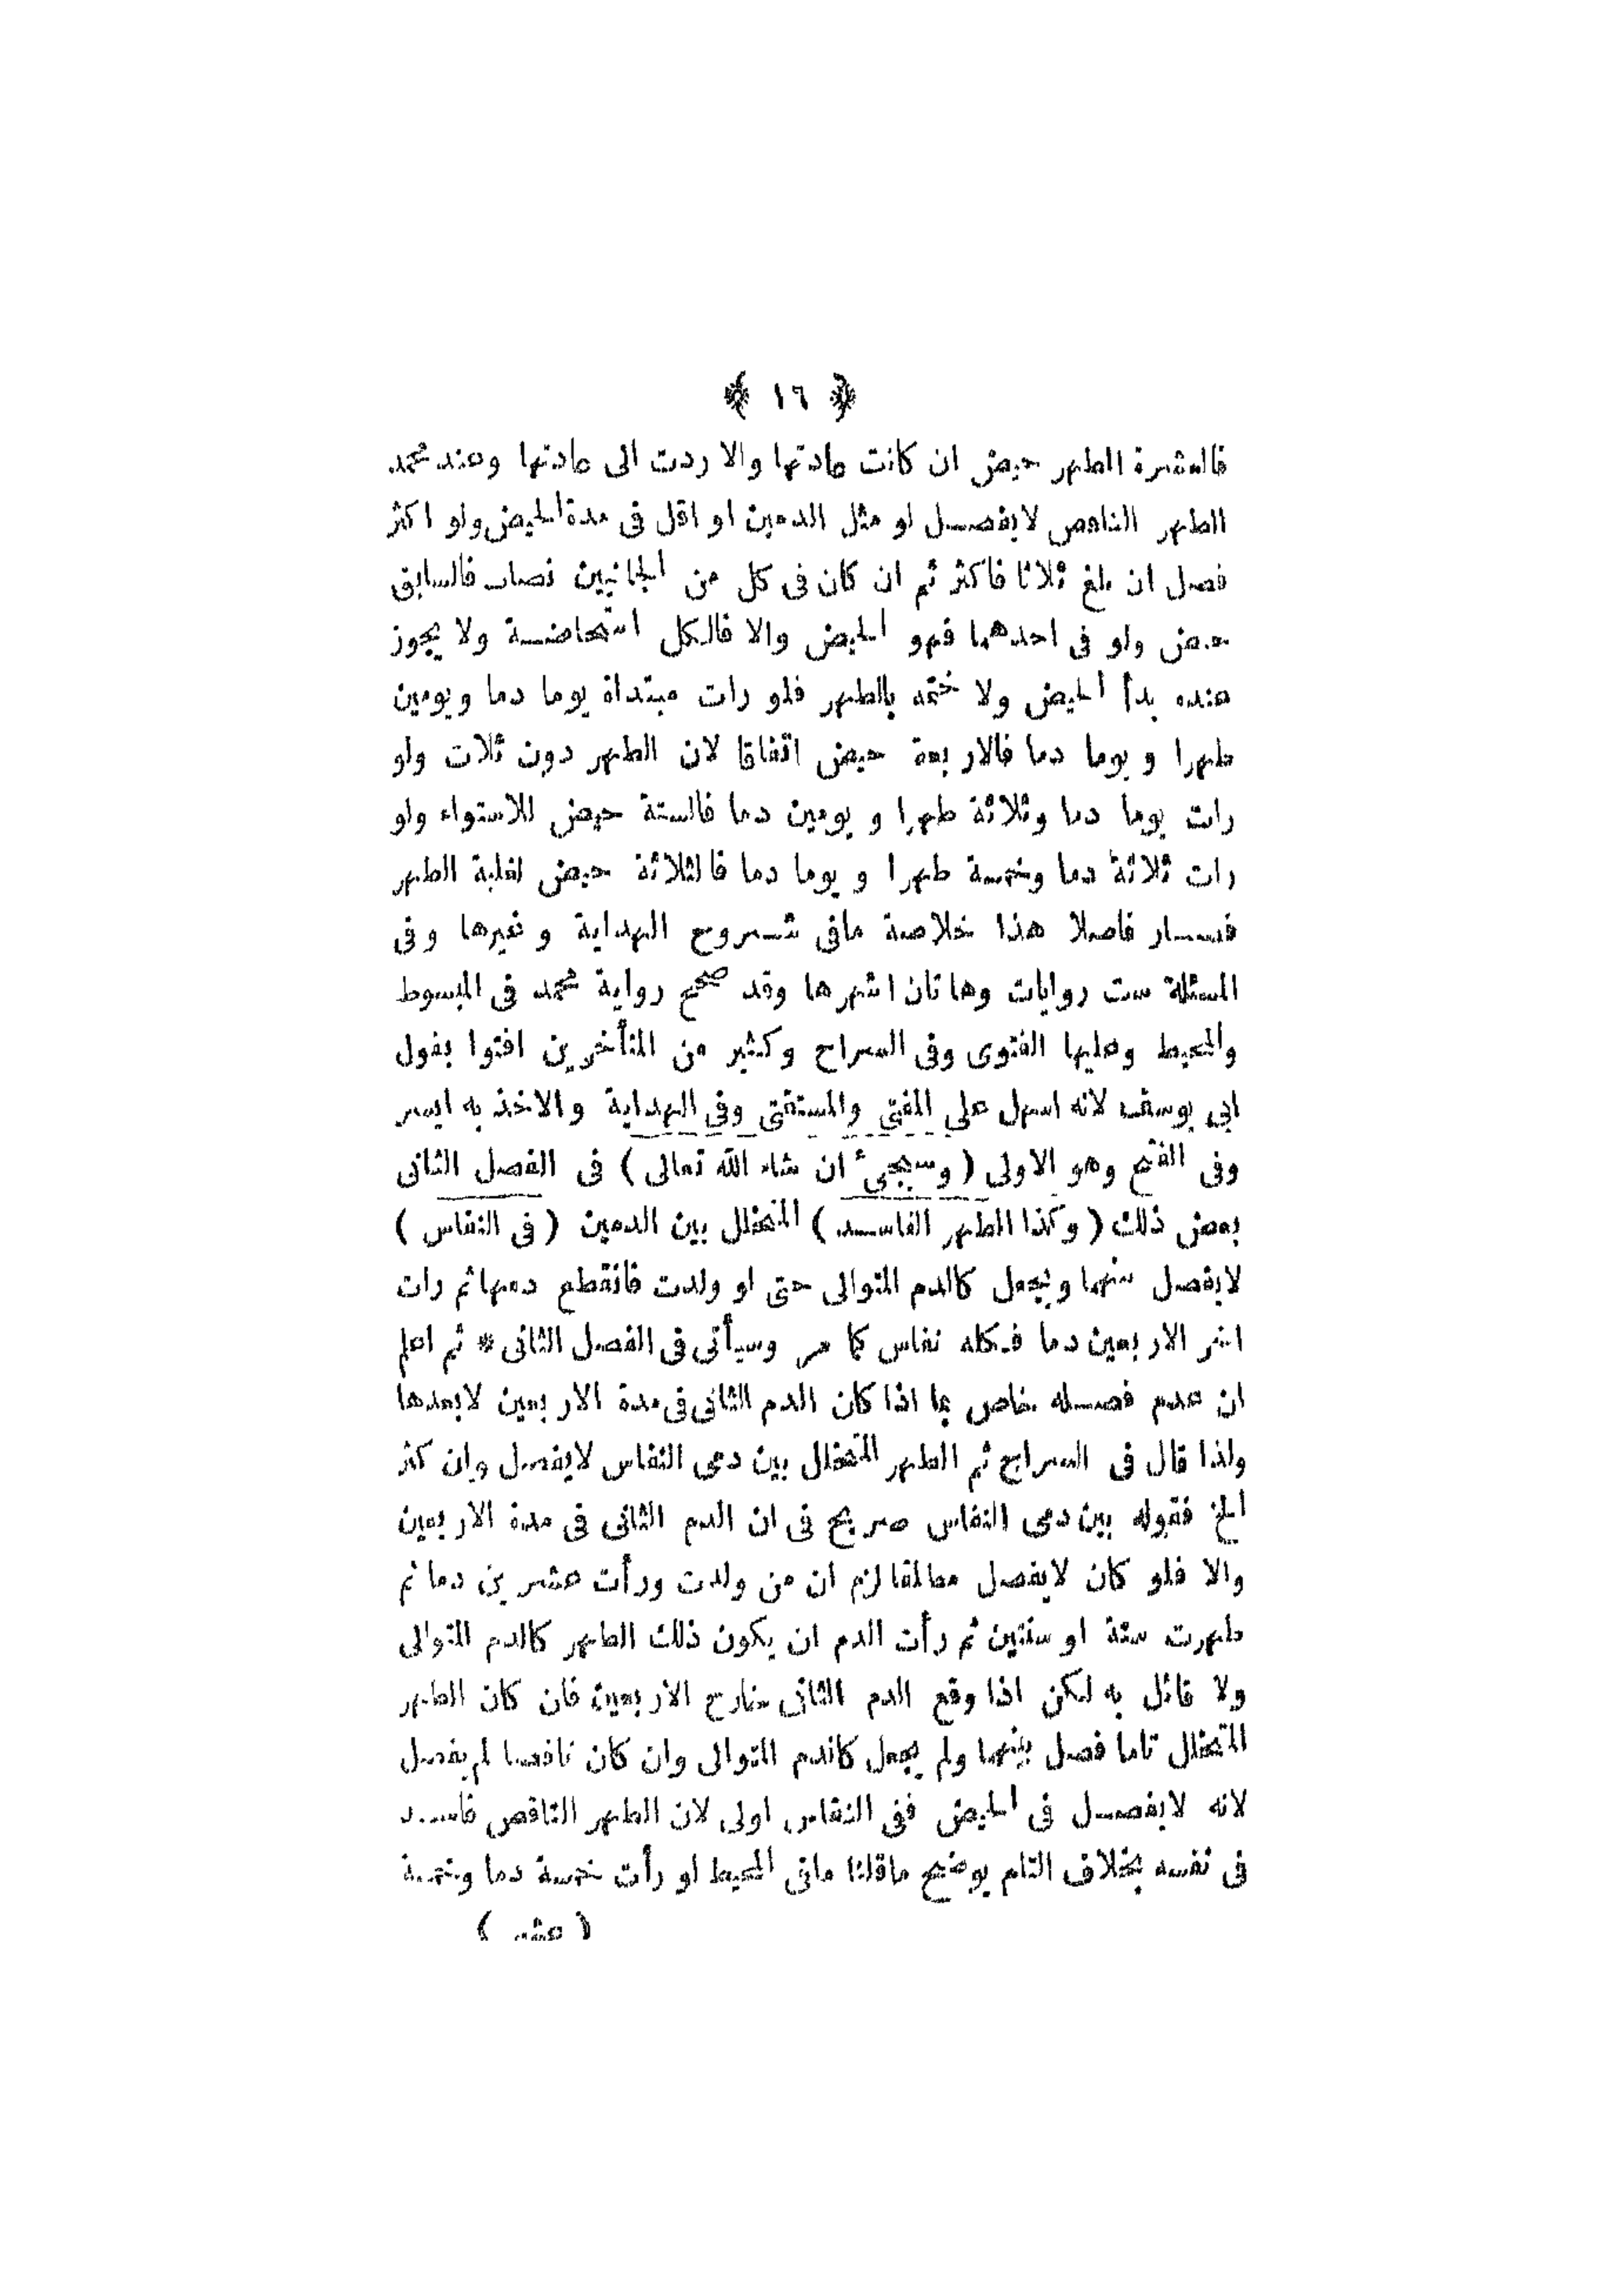 ﴿ ١٦ ﴾
فالعشرة الطهر حيض ان كانت عادتها والا ردت الى عادتها وعند محمد
الطهر الناقص لايفصل لو مثل الدمين او اقل فى مدة الحيض ولو اكثر
فصل ان بلغ ثلاثا فاكثر ثم ان كان فى كل من الجانبين نصاب فالسابق
حيض ولو فى احدهما فهو الحيض والا فالكل استحاضة ولا يجوز
عنده بدأ الحيض ولا ختمه بالطهر فلو رات مبتداة يوما دما ويومين
طهرا و يوما دما فالاربعة حيض اتفاقا لان الطهر دون ثلاث ولو
رات يوما دما وثلاثة طهرا و يومين دما فالستة حيض للاستواء ولو
رات ثلاثة دما وخمسة طهرا و يوما دما فالثلاثة حيض لغلبة الطهر
فصار فاصلا هذا خلاصة مافى شروح الهداية و غيرها وفى
المسئلة ست روايات وهاتان اشهرها وقد صحح رواية محمد فى المبسوط
والمحيط وعليها الفتوى وفى السراج وكثير من المتأخرين افتوا بقول
ابى يوسف لانه اسهل على المفتى والمستفتى وفى الهداية والاخذ به ايسر
وفى الفتح وهو الاولى ( وسيجئ ان شاء الله تعالى ) فى الفصل الثانى
بعض ذلك ( وكذا الطهر الفاسد ) المتخلل بين الدمين ( فى النفاس )
لايفصل بينهما ويجعل كالدم المتوالى حتى لو ولدت فانقطع دمها ثم رات
اخر الاربعين دما فكله نفاس كما مر وسيأتى فى الفصل الثانى * ثم اعلم
ان عدم فصله خاص بما اذا كان الدم الثانى فى مدة الاربعين لابعدها
ولذا قال فى السراج ثم الطهر المتخلل بين دمى النفاس لايفصل وان كثر
الخ فقوله بين دمى النفاس صريح فى ان الدم الثانى فى مدة الاربعين
والا فلو كان لايفصل مطلقا لزم ان من ولدت ورأت عشرين دما ثم
طهرت سنة او سنتين ثم رأت الدم ان يكون ذلك الطهر كالدم المتوالى
ولا قائل به لكن اذا وقع الدم الثانى خارج الاربعين فان كان الطهر
المتخلل تاما فصل بينهما ولم يجعل كالدم المتوالى وان كان ناقصا لم يفصل
لانه لايفصل فى الحيض ففى النفاس اولى لان الطهر الناقص فاسد
فى نفسه بخلاف التام يوضح ماقلنا مافى المحيط لو رأت خمسة دما وخمسة
( عشر )